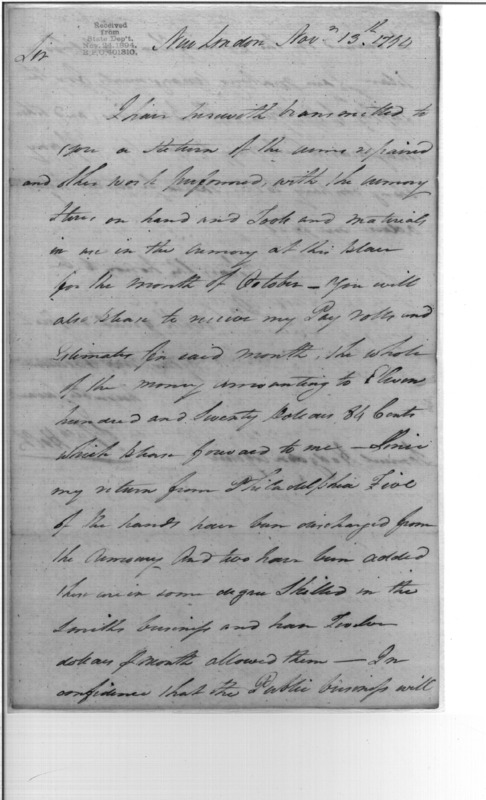 Received
from
State Dep't.
New London Nov.r 13th 1794
Sir
I have herewith transmitted to
you a Return of the arms repaired
and other work performed, with the armory
Stores on hand and Tools and materials
in use in the armory at this place
for the month of October — You will
also please to receive my Pay rolls and
Estimates for said month, the whole
of the money amounting to Eleven
hundred and twenty Dollars 84 Cents
which please forward to me — Since
my return from Philadelphia Five
of the hands have been discharged from
the armory And two have been added
these are in some degree Skilled in the
Smiths business and have Twelve
dollars p month allowed them — In
confidence that the Public business will